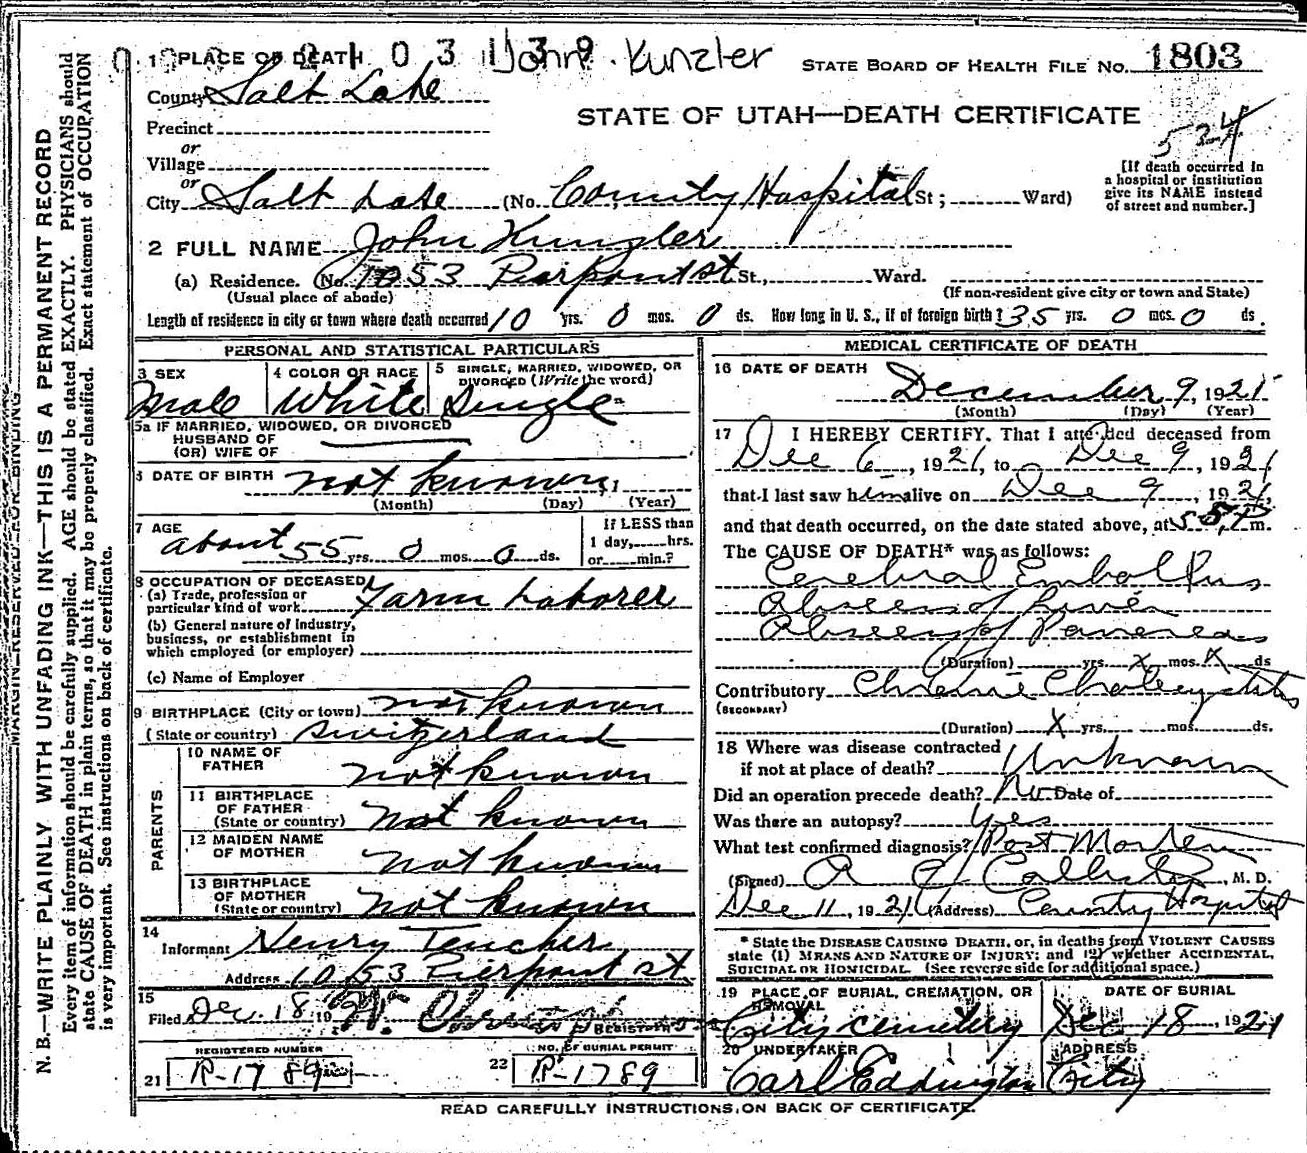 1 PLACE OF DEATH John Kunzler STATE BOARD OF HEALTH FILE NO. 1803
County Salt Lake
STATE OF UTAH—DEATH CERTIFICATE
Precinct
or
Village
534
or
City Salt Lake (No. County Hospital St; Ward)
[If death occurred in
a hospital or institution
give its NAME instead
of street and number.]
2 FULL NAME John Kunzler
(a) Residence. No. 1053 Pierpont st St., Ward.
(Usual place of abode) (If non-resident give city or town and State)
Length of residence in city or town where death occurred 10 yrs. 0 mos. 0 ds. How long in U. S., if of foreign birth? 35 yrs. 0 mos. 0 ds.
PERSONAL AND STATISTICAL PARTICULARS
3 SEX 4 COLOR OR RACE 5 SINGLE, MARRIED, WIDOWED, OR
DIVORCED (Write the word)
Male White Single
5a IF MARRIED, WIDOWED, OR DIVORCED
HUSBAND OF
(OR) WIFE OF
6 DATE OF BIRTH not known, 1
(Month) (Day) (Year)
7 AGE If LESS than
about 55 yrs. 0 mos. 0 ds. 1 day, hrs.
or min.?
8 OCCUPATION OF DECEASED
(a) Trade, profession or
particular kind of work Farm Laborer
(b) General nature of Industry,
business, or establishment in
which employed (or employer)
(c) Name of Employer
9 BIRTHPLACE (City or town) not known
(State or country) Switzerland
PARENTS
10 NAME OF
FATHER not known
11 BIRTHPLACE
OF FATHER
(State or country) not known
12 MAIDEN NAME
OF MOTHER not known
13 BIRTHPLACE
OF MOTHER
(State or country) not known
14
Informant Henry Teucher
Address 1053 Pierpont st
15
Filed Dec. 18 19 W. REGISTRAR
REGISTERED NUMBER NO. OF BURIAL PERMIT
21 R-1789 22 R-1789
MEDICAL CERTIFICATE OF DEATH
16 DATE OF DEATH
December 9, 1921
(Month) (Day) (Year)
17 I HEREBY CERTIFY, That I attended deceased from
Dec 6, 1921, to Dec 9, 1921
that I last saw him alive on Dec 9, 1921,
and that death occurred, on the date stated above, at m.
The CAUSE OF DEATH* was as follows:
Cerebral Embolus
Abscess of Liver
Abscess of Pancreas
(Duration) yrs. x mos. x ds
Contributory Chronic Cholecystitis
(SECONDARY)
(Duration) x yrs. mos. ds.
18 Where was disease contracted
if not at place of death? Unknown
Did an operation precede death? No Date of
Was there an autopsy? yes
What test confirmed diagnosis? Post Mortem
(Signed) , M. D.
Dec 11, 1921 (Address) County Hospital
* State the DISEASE CAUSING DEATH, or, in deaths from VIOLENT CAUSES
state (1) MEANS AND NATURE OF INJURY; and (2) whether ACCIDENTAL,
SUICIDAL OR HOMICIDAL. (See reverse side for additional space.)
19 PLACE OF BURIAL, CREMATION, OR
REMOVAL DATE OF BURIAL
City Cemetery Dec 18, 1921
20 UNDERTAKER ADDRESS
Carl Eddington City
READ CAREFULLY INSTRUCTIONS ON BACK OF CERTIFICATE.
MARGIN RESERVED FOR BINDING
N. B.—WRITE PLAINLY WITH UNFADING INK—THIS IS A PERMANENT RECORD
Every item of information should be carefully supplied. AGE should be stated EXACTLY. PHYSICIANS should
state CAUSE OF DEATH in plain terms, so that it may be properly classified. Exact statement of OCCUPATION
is very important. See instructions on back of certificate.